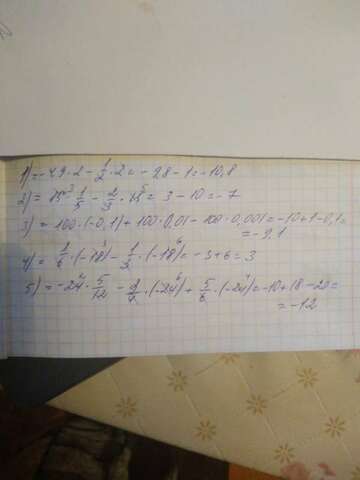 1) = -4,9·2 - 1/2·2 = -9,8 - 1 = -10,8
2) = 15³·1/5 - 2/3·15⁵ = 3 - 10 = -7
3) = 100·(-0,1) + 100·0,01 - 100·0,001 = -10+1-0,1=
= -9,1
4) = 1/6·(-18)³ - 1/3·(-18)⁶ = -3+6=3
5) = -24²·5/12 - 3/4·(-24)⁶ + 5/6·(-24)⁴ = -10+18-20=
= -12